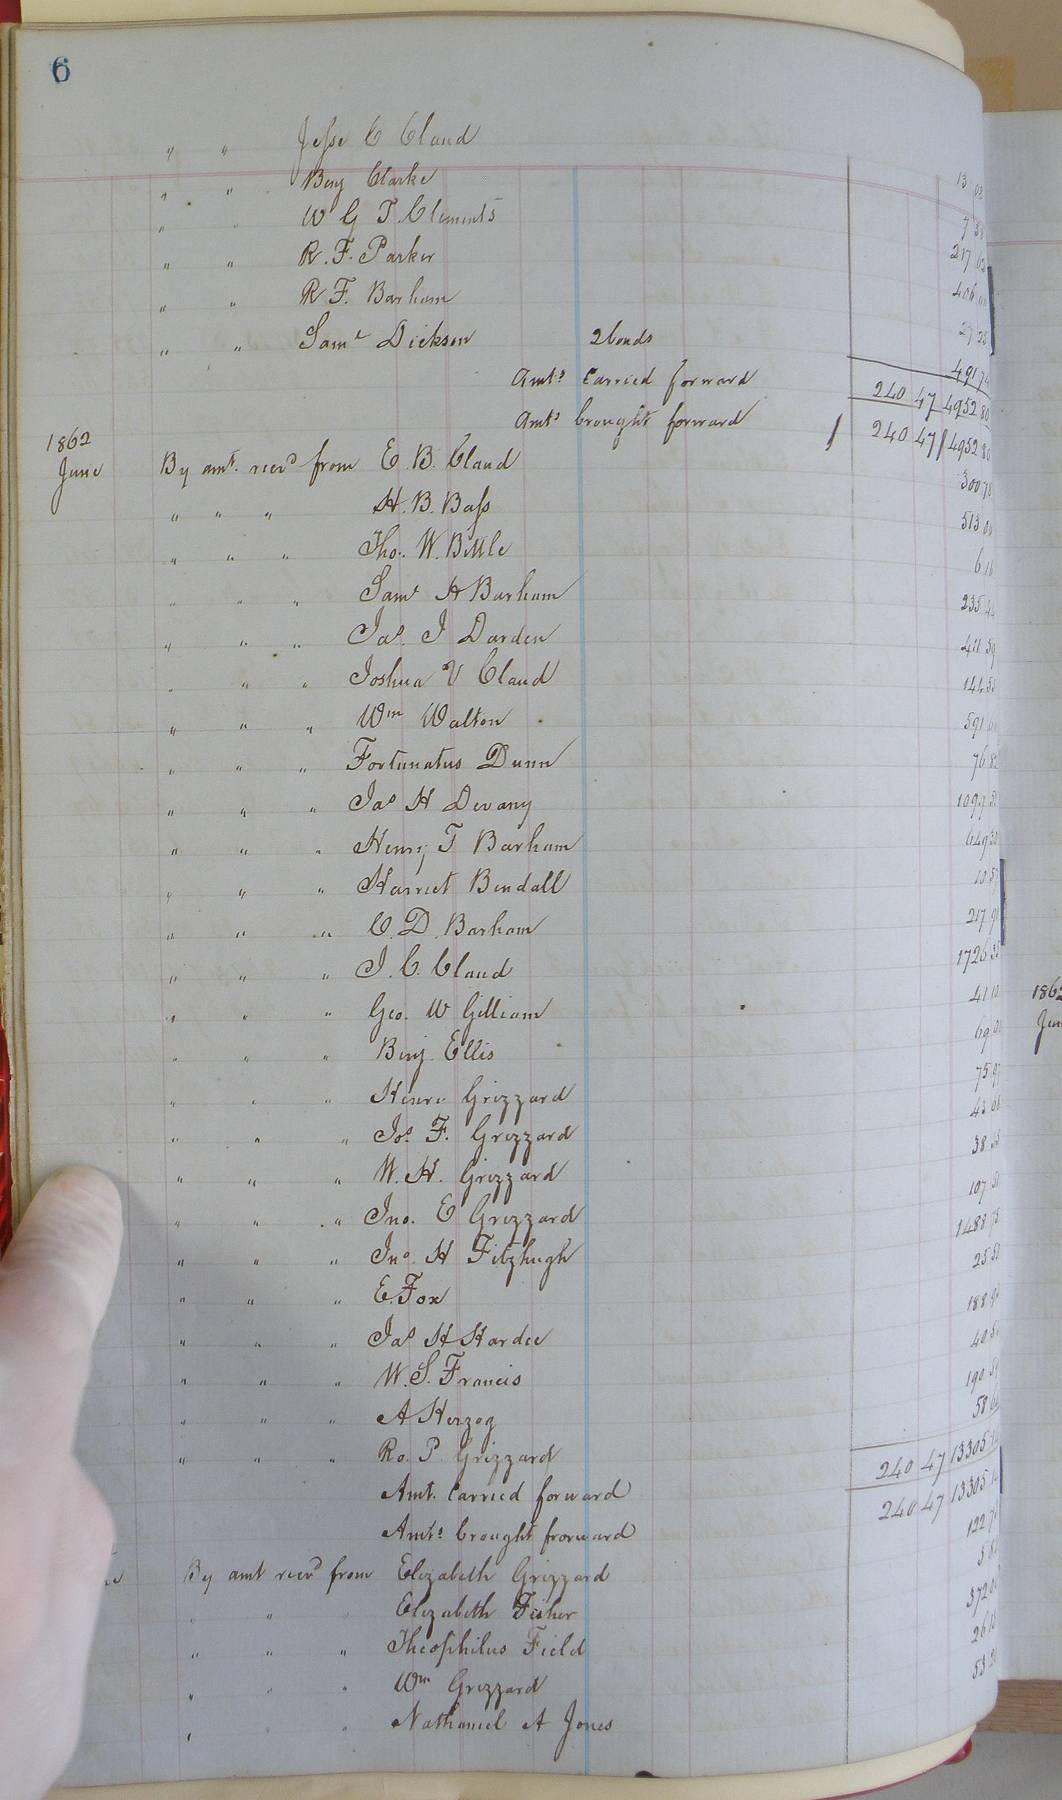 6
" " Jesse C Claud 13
" " Benj Clarke 7
" " W G T. Clements 217
" " R. F. Parker 406
" " R F. Barham 29
" " Saml Dickson 2 bonds 491
Amts Carried forward 240 47 4952 80
Amts brought forward 240 47 4952 80
1862
June By amt. recd from E. B. Claud 300
" " " H. B. Bass 513
" " " Tho. W. Bittle 6
" " " Saml H Barham 235
" " " Jas. J Darden 411 59
" " " Joshua V Claud
" " " Wm Walton 591
" " " Fortunatus Dunn 76 82
" " " Jas H Devany
" " " Henry T Barham 649
" " " Harriet Bendall
" " " C. D. Barham 217
" " " J. C. Claud 1726
" " " Geo. W Gilliam 41
" " " Benj. Ellis 69
" " " Henry Grizzard 75
" " " Jos. F. Grizzard
" " " W. H. Grizzard 38
" " " Jno. E Grizzard 107
" " " Jno. H Fitzhugh 1488
" " " E. Fox 25
" " " Jas H Hardee 188
" " " W. S. Francis 40
" " " A Herzog 190
" " " Ro. P. Grizzard 58
Amt. Carried forward 240 47 13305
Amts brought frorward 240 47 13305
By amt recd from Elizabeth Grizzard 122
" " " Elizabeth Fisher
" " " Theophilus Field 372
" " " Wm Grizzard 26
" " " Nathaniel A Jones 53
1862